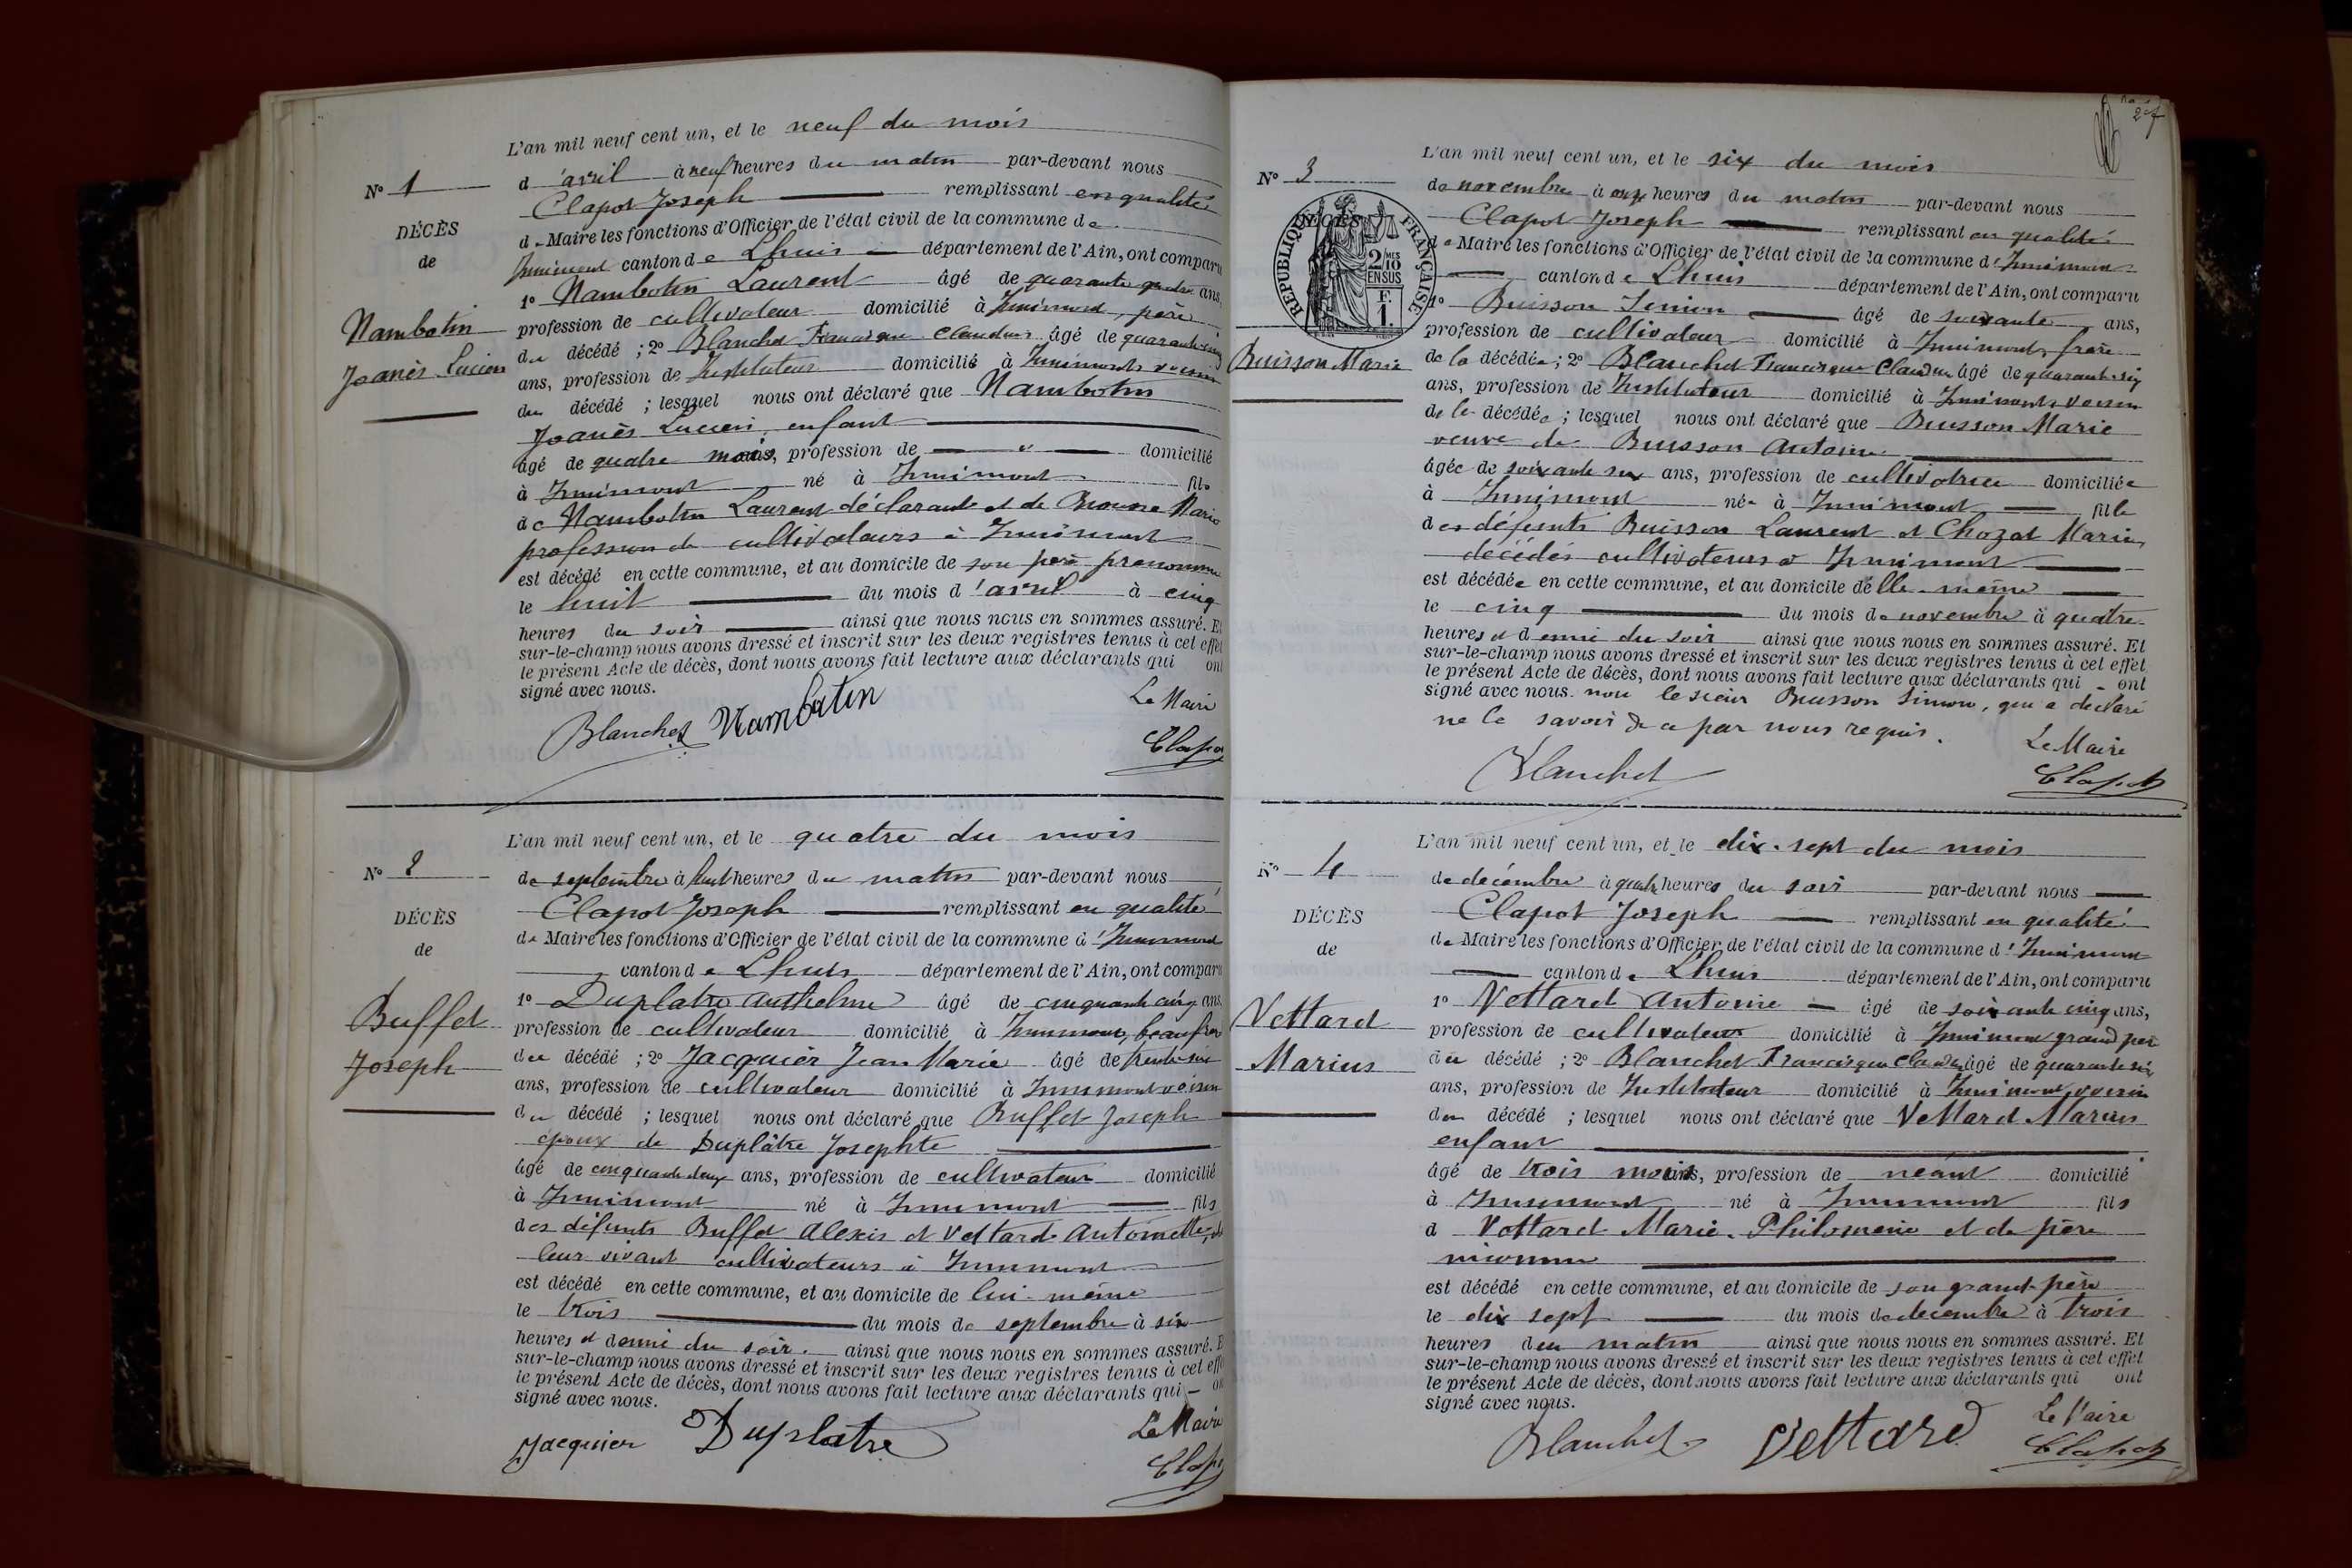 L'an mil neuf cent un, et le neuf du mois
N° 1
d'avril à neuf heures du matin par-devant nous
Clapot Joseph remplissant en qualité
DÉCÈS
de Maire les fonctions d'Officier de l'état civil de la commune de
de
Innimont canton de Lhuis département de l'Ain, ont comparu
1° Nambotin Laurent âgé de quarante quatre ans,
Nambotin
profession de cultivateur domicilié à Innimont, père
du décédé ; 2° Blanchet Francisque Claudius âgé de quarante-cinq
Joanès Lucien
ans, profession de Instituteur domicilié à Innimont, voisin
du décédé ; lesquel nous ont déclaré que Nambotin
Joanès Lucien, enfant
âgé de quatre mois, profession de " domicilié
à Innimont né à Innimont fils
de Nambotin Laurent déclarant et de Marie
profession de cultivateurs à Innimont
est décédé en cette commune, et au domicile de son père prénommé
le huit du mois d'avril à cinq
heures du soir ainsi que nous nous en sommes assuré. Et
sur-le-champ nous avons dressé et inscrit sur les deux registres tenus à cet effet
le présent Acte de décès, dont nous avons fait lecture aux déclarants qui ont
signé avec nous.
Le Maire
Blanchet Nambotin
Clapot
L'an mil neuf cent un, et le quatre du mois
N° 2
de septembre à huit heures du matin par-devant nous
Clapot Joseph remplissant en qualité
DÉCÈS
de Maire les fonctions d'Officier de l'état civil de la commune d'Innimont
de
canton de Lhuis département de l'Ain, ont comparu
1° Duplatre Anthelme âgé de cinquante cinq ans,
Buffet
profession de cultivateur domicilié à Innimont, beau frère
du décédé ; 2° Jacquier Jean Marie âgé de trente-six
Joseph
ans, profession de cultivateur domicilié à Innimont voisin
du décédé ; lesquel nous ont déclaré que Buffet Joseph
époux de Duplâtre Josephte
âgé de cinquante deux ans, profession de cultivateur domicilié
à Innimont né à Innimont fils
des défunts Buffet Alexis et Vettard Antoinette, de
leur vivant cultivateurs à Innimont
est décédé en cette commune, et au domicile de lui-même
le trois du mois de septembre à six
heures et demi du soir. ainsi que nous nous en sommes assuré. Et
sur-le-champ nous avons dressé et inscrit sur les deux registres tenus à cet effet
le présent Acte de décès, dont nous avons fait lecture aux déclarants qui ont
signé avec nous.
Le Maire
Jacquier Duplatre
Clapot
27
L'an mil neuf cent un, et le six du mois
N° 3
de novembre à onze heures du matin par-devant nous
Clapot Joseph remplissant en qualité
DÉCÈS
RÉPUBLIQUE FRANÇAISE
2/10 MES
EN SUS
F. 1.
de Maire les fonctions d'Officier de l'état civil de la commune d'Innimont
canton de Lhuis département de l'Ain, ont comparu
1° Buisson Simon âgé de soixante ans,
profession de cultivateur domicilié à Innimont, frère
Buisson Marie
de la décédée ; 2° Blanchet Francisque Claudius âgé de quarante-six
ans, profession de Instituteur domicilié à Innimont, voisin
de la décédée ; lesquel nous ont déclaré que Buisson Marie
veuve de Buisson Antoine
âgée de soixante six ans, profession de cultivatrice domiciliée
à Innimont née à Innimont fille
des défunts Buisson Laurent et Chozat Marie,
décédés cultivateurs à Innimont
est décédée en cette commune, et au domicile d'elle-même
le cinq du mois de novembre à quatre
heures et demi du soir ainsi que nous nous en sommes assuré. Et
sur-le-champ nous avons dressé et inscrit sur les deux registres tenus à cet effet
le présent Acte de décès, dont nous avons fait lecture aux déclarants qui ont
signé avec nous. non le sieur Buisson Simon, qui a déclaré
ne le savoir de ce par nous requis.
Le Maire
Blanchet
Clapot
L'an mil neuf cent un, et le dix-sept du mois
N° 4
de décembre à quatre heures du soir par-devant nous
Clapot Joseph remplissant en qualité
DÉCÈS
de Maire les fonctions d'Officier de l'état civil de la commune d'Innimont
de
canton de Lhuis département de l'Ain, ont comparu
1° Vettard Antoine âgé de soixante cinq ans,
Vettard
profession de cultivateur domicilié à Innimont grand père
Marius
du décédé ; 2° Blanchet Francisque Claudius âgé de quarante six
ans, profession de Instituteur domicilié à Innimont, voisin
du décédé ; lesquel nous ont déclaré que Vettard Marius
enfant
âgé de trois mois, profession de néant domicilié
à Innimont né à Innimont fils
d Vettard Marie-Philomène et de père
inconnu
est décédé en cette commune, et au domicile de son grand-père
le dix sept du mois de décembre à trois
heures du matin ainsi que nous nous en sommes assuré. Et
sur-le-champ nous avons dressé et inscrit sur les deux registres tenus à cet effet
le présent Acte de décès, dont nous avons fait lecture aux déclarants qui ont
signé avec nous.
Le Maire
Blanchet Vettard
Clapot